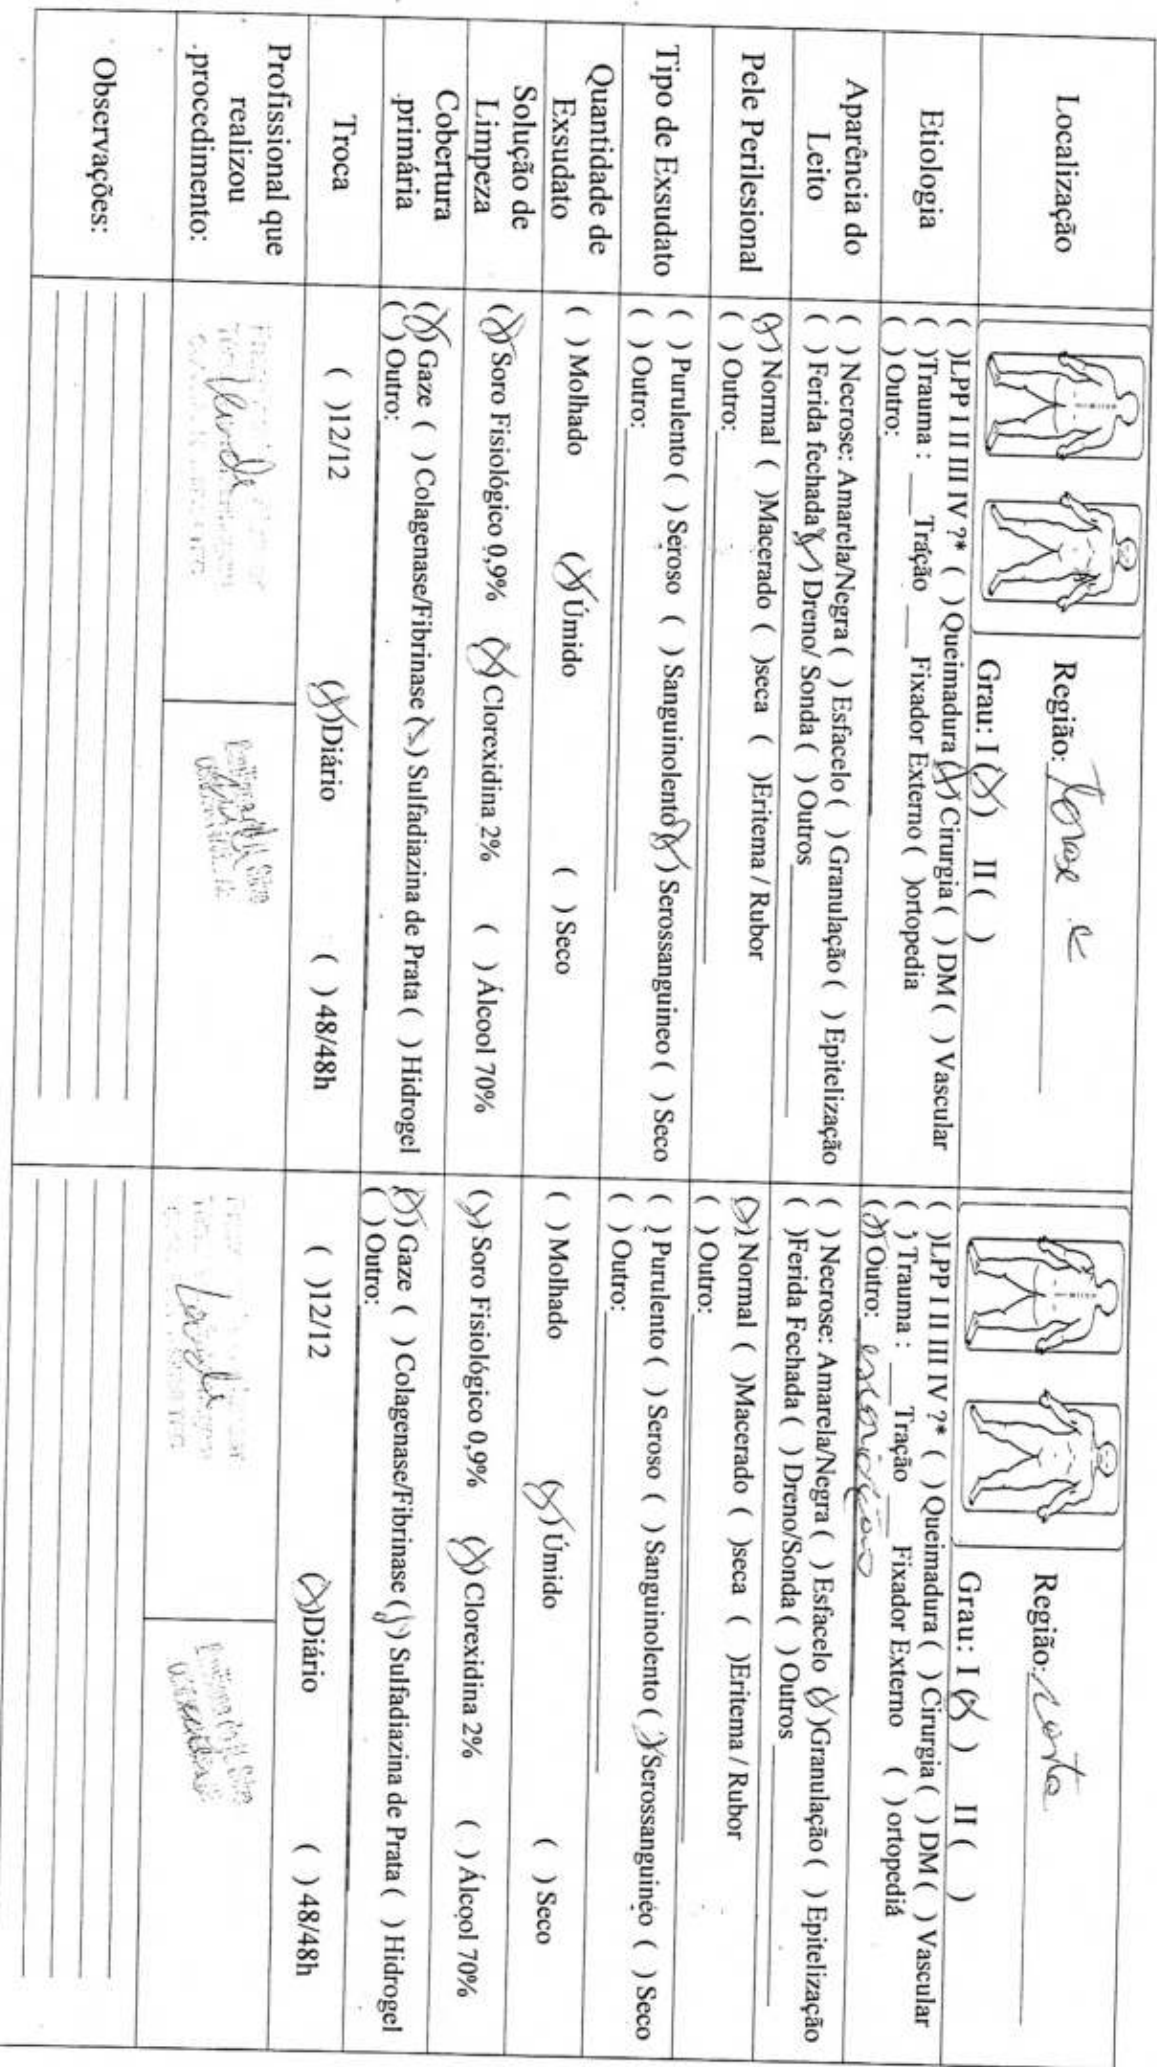 Localização
Região: Torax E
Grau: I (X) II ( )
Região: rosto
Grau: I (X) II ( )
Etiologia
( )LPP I II III IV ?* ( ) Queimadura (X) Cirurgia ( ) DM ( ) Vascular
( )Trauma : ___ Tração ___ Fixador Externo ( )ortopedia
( ) Outro:
( )LPP I II III IV ?* ( ) Queimadura ( ) Cirurgia ( ) DM ( ) Vascular
( ) Trauma : ___ Tração ___ Fixador Externo ( ) ortopedia
(X) Outro: escoriação
Aparência do
Leito
( ) Necrose: Amarela/Negra ( ) Esfacelo ( ) Granulação ( ) Epitelização
( ) Ferida fechada (X) Dreno/ Sonda ( ) Outros
( ) Necrose: Amarela/Negra ( ) Esfacelo (X)Granulação ( ) Epitelização
( )Ferida Fechada ( ) Dreno/Sonda ( ) Outros
Pele Perilesional
(X) Normal ( )Macerado ( )seca ( )Eritema / Rubor
( ) Outro:
(X) Normal ( )Macerado ( )seca ( )Eritema / Rubor
( ) Outro:
Tipo de Exsudato
( ) Purulento ( ) Seroso ( ) Sanguinolento (X) Serossanguineo ( ) Seco
( ) Outro:
( ) Purulento ( ) Seroso ( ) Sanguinolento (X) Serossanguineo ( ) Seco
( ) Outro:
Quantidade de
Exsudato
( ) Molhado (X) Úmido ( ) Seco
( ) Molhado (X) Úmido ( ) Seco
Solução de
Limpeza
(X) Soro Fisiológico 0,9% (X) Clorexidina 2% ( ) Álcool 70%
(X) Soro Fisiológico 0,9% (X) Clorexidina 2% ( ) Álcool 70%
Cobertura
primária
(X) Gaze ( ) Colagenase/Fibrinase (X) Sulfadiazina de Prata ( ) Hidrogel
( ) Outro:
(X) Gaze ( ) Colagenase/Fibrinase (X) Sulfadiazina de Prata ( ) Hidrogel
( ) Outro:
Troca
( )12/12 (X)Diário ( ) 48/48h
( )12/12 (X)Diário ( ) 48/48h
Profissional que
realizou
procedimento:
Observações: